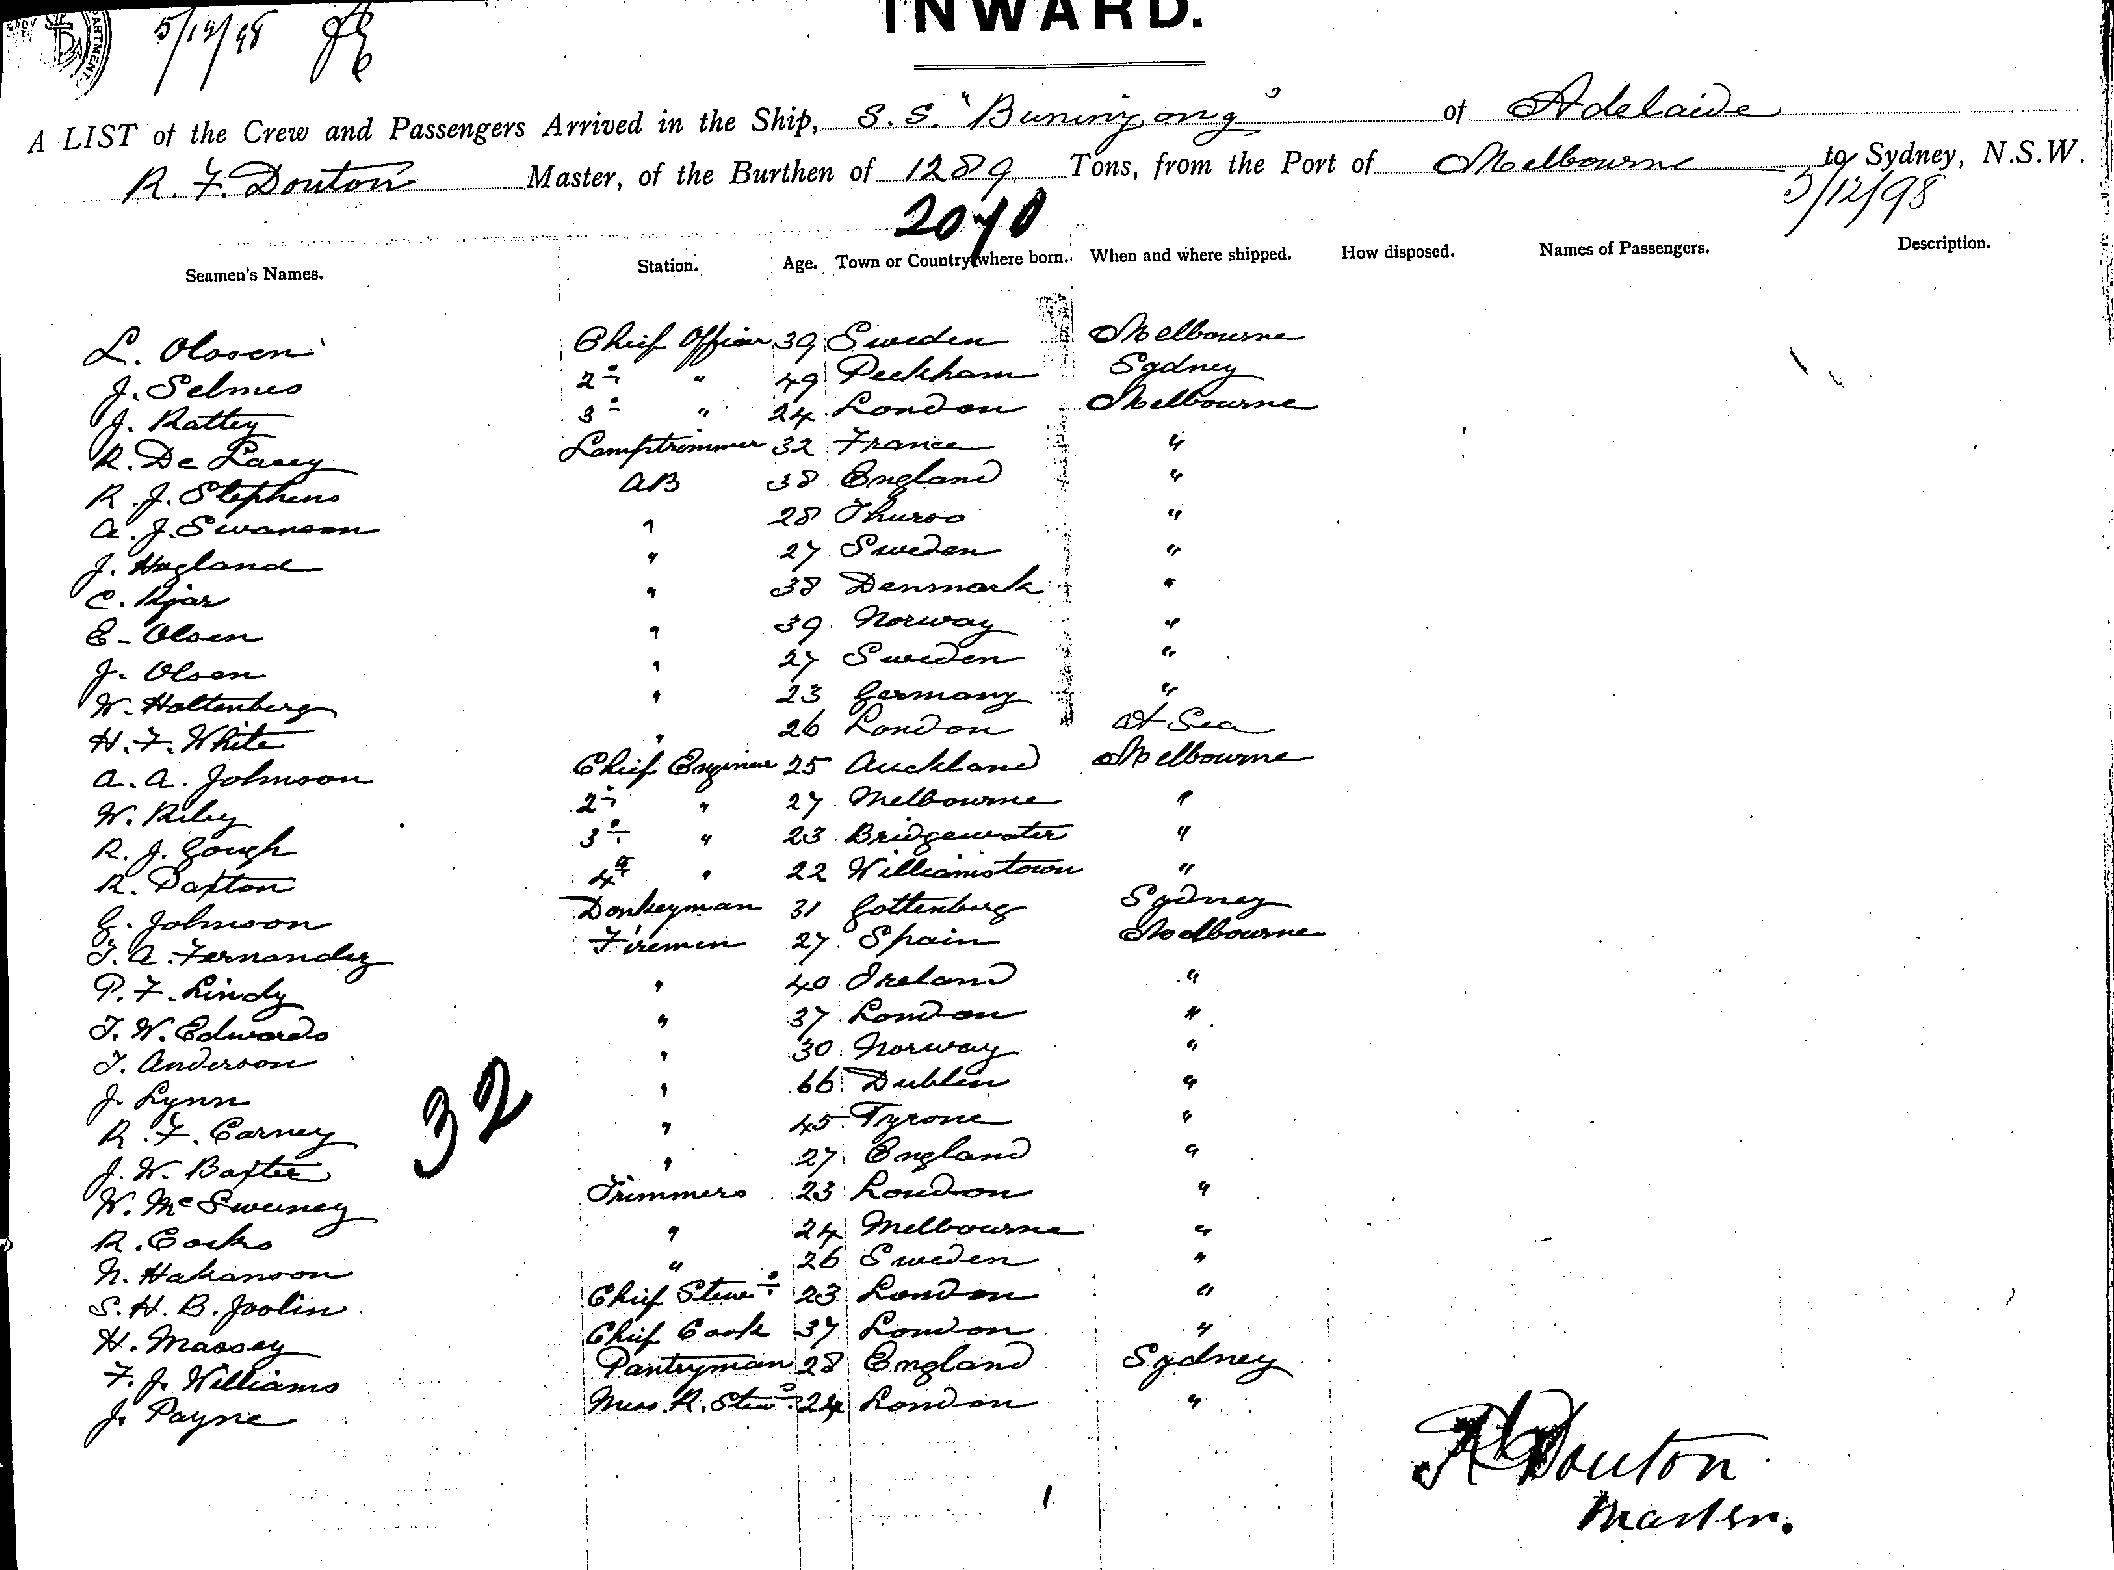 INWARD.
5/12/98
A LIST of the Crew and Passengers Arrived in the Ship, S.S. "Buninyong" of Adelaide
R. F. Douton Master, of the Burthen of 1289 Tons, from the Port of Melbourne to Sydney, N.S.W.
5/12/98
Seamen's Names. Station. Age. Town or Country where born. When and where shipped. How disposed. Names of Passengers. Description.
L. Olosen Chief Officer 39 Sweden Melbourne
J. Selmes 2nd " 49 Peckham Sydney
J. Rattey 3rd " 24 London Melbourne
R. De Lacey Lamptrimmer 32 France "
R. J. Stephens AB 38 England "
A. J. Swanson " 28 Thurso "
J. Hogland " 27 Sweden "
C. Kjar " 38 Denmark "
E. Olsen " 39 Norway "
J. Olsen " 27 Sweden "
W. Holtenberg " 23 Germany "
H. F. White " 26 London At Sea
A. A. Johnson Chief Engineer 25 Auckland Melbourne
W. Riley 2nd " 27 Melbourne "
R. J. Gough 3rd " 23 Bridgewater "
R. Paxton 4th " 22 Williamstown "
G. Johnson Donkeyman 31 Gottenburg Sydney
T. A. Fernandez Firemen 27 Spain Melbourne
P. F. Lindy " 40 Ireland "
T. W. Edwards " 37 London "
T. Anderson " 30 Norway "
J. Lynn " 66 Dublin "
R. F. Carney " 45 Tyrone "
J. W. Baxter " 27 England "
W. McSweeney Trimmers 23 London "
R. Cocks " 24 Melbourne "
N. Hakanson " 26 Sweden "
S. H. B. Joolin Chief Stewd 23 London "
H. Massey Chief Cook 37 London "
F. J. Williams Pantryman 28 England Sydney
J. Payne Mess R. Stewd 24 London "
32
R Douton
Master.